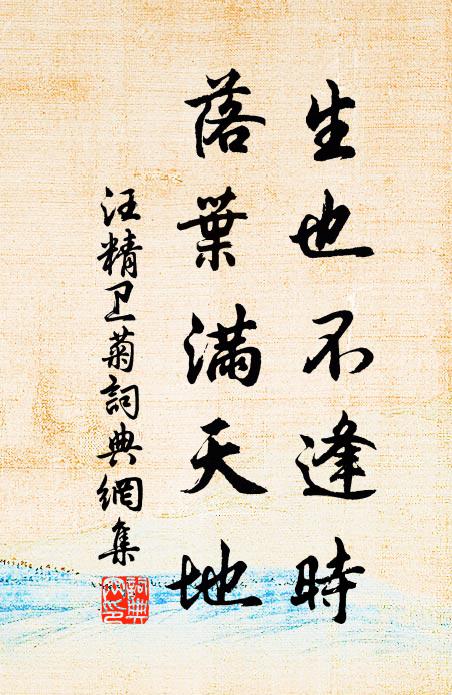 生也不逢時
落葉滿天地
汪精卫菊詞典網集